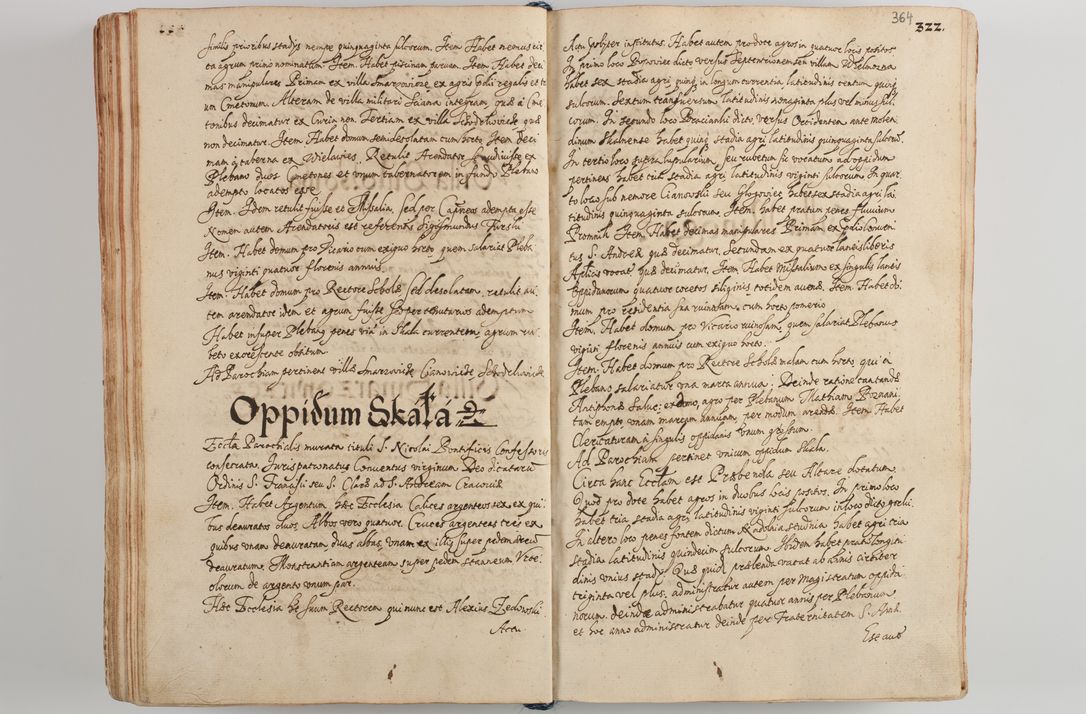 similis prioribus stadys nempe quinquaginta sulcorum. Item Habet nemus cir
ca agrum primo nominatum. Item. Habet piscinam parvam. Item Habet deci
mas manipulares Primam ex villa Smarzovicze ex agris
um Cmetonum. Alteram de villa militari Sciana integram, quæ a Cme
tonibus decimatur ex Curia non Tertiam ex villa quæ
non decimatur. Item. Habet domum semidesolatam cum horto. Item deci
mam à taberna ex Wielavies, Retulit Arendator fuisse ex
Plebano duos cmetones et unum tabernatorem in fundo Plebano
adempto locatos esse
Item. Idem retulit fuisse et Missalia, sed per adempta esse
Nomen autem Arendatoris est referentis Sigismundus
Item. Habet domum pro Vicario cum exiguo horto, quem salariat Pleba
nus viginti quatuor florenis annuis
Item. Habet domum pro Rectore Scholæ sed desolatam, retulit au
tem arendator idem et agrum fuisse adeptum
Habet insuper Plebanus penes viam in Skala currentem, agrum ru
beto excrescente obsitum.
Ad Parochiam pertinent villæ Smarzovice
Oppidum Skała
Eccla Parochialis murata tituli S. Nicolai Pontificis Confessoris
consecrata, Juris patronatus Conventus virginum Deo dicatarum
Ordinis S. Francisi seu S. Claræ ad S. Andream Cracoviæ
Item. Habet Argentum hæc Ecclesia Calices argenteos sex, ex qui
bus deauratos duos, Albos vero quatuor. Cruces argenteas tres ex
quibus unam deauratam duas albas, unam ex illis super pedem æreum
deauratum. Monstrantiam argenteam super pedem stanneum Vrce
olorum de argento unum par.
Hæc Ecclesia hæt suum Rectorem qui nunc est Alexius Zedowski
Acu

364
322.
institutus. Habet autem pro dote agros in quatuor locis positos
In primo loco dicto versus Septentrionem seu villam
habet sex stadia agri, quinq in longum currentia latitudinis centum quinq
sulcorum. Sextum transversum latitudinis nonaginta plus vel minus sul
corum. In secundo loco dicto, versus Occidentem ante molen
dinum Skalnense habet quinq stadia agri latitudinis quinquaginta sulcorum
In tertio loco supra lupularum seu rubetum sic vocatum ad oppidum
pertinens habet tria stadia agri latitudinis viginti sulcorum. In quar
to loco sub nemore Cianowski seu Głogowiec habet sex stadia agri la
titudinis quinquaginta sulcorum. Item. habet pratum penes fluvium
Promnik. Item. Habet decimas manipulares Primam ex prædio Conven
tus S. Andreæ quæ decimatur, Secundam ex quatuor laneis liberis
vocat quæ decimatur, Item. Habet Missalium ex singulis laneis
oppidanorum quatuor coretos siliginis totidem avenæ. Item. Habet do
mum pro residentia sua ruinosam, cum horto pomerio
Item. Habet domum pro Vicario ruinosam, quem salariat Plebanus
viginti florenis annuis cum exiguo horto.
Item. Habet domum pro Rectore Scholæ malam cum horto, qui a
Plebano salariatur una marca annua. Deinde ratione cantandæ
Antiphonæ Salve: ex domo, agro per Plebanum Mathiam Poznani
tam empto, unam marcam annuam, per modum arendæ. Item Habet
Clericaturam à singulis oppidanis unum grossum.
Ad Parochiam pertinet unicum oppidum Skala.
Circa hanc Ecclam est Præbenda seu Altare dotatum.
Quod pro dote habet agros in duobus locis positos. In primo loco
habet tria stadia agri, latitudinis viginti sulcorum in loco dicto
In altero loco penes fontem dictum studnia habet agri tria
stadia latitudinis quindecim sulcorum. Ibidem habet
dinis unius stadij Quæ quid præbenda vacat ab annis circiter
triginta vel plus, administratur autem per Magistratum oppida
norum, deinde administrabatur quatuor annis per Plebanum
et hoc anno administratur deinde per Fraternitatem S.
Est aut